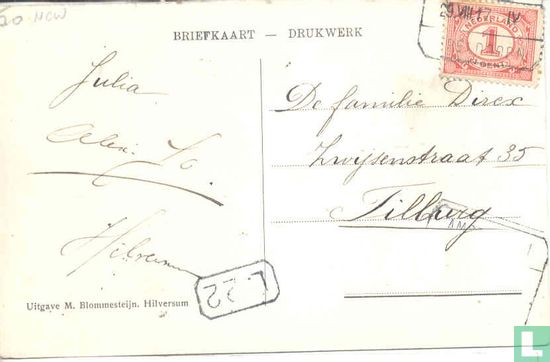 20 NCW
BRIEFKAART — DRUKWERK
29 VIII 17 IV
NEDERLAND
1
CENT
Julia
Alex. Jo.
Hilversum
De familie Direx
Zwijsenstraat 35
Tilburg
L. 22
Uitgave M. Blommesteijn. Hilversum